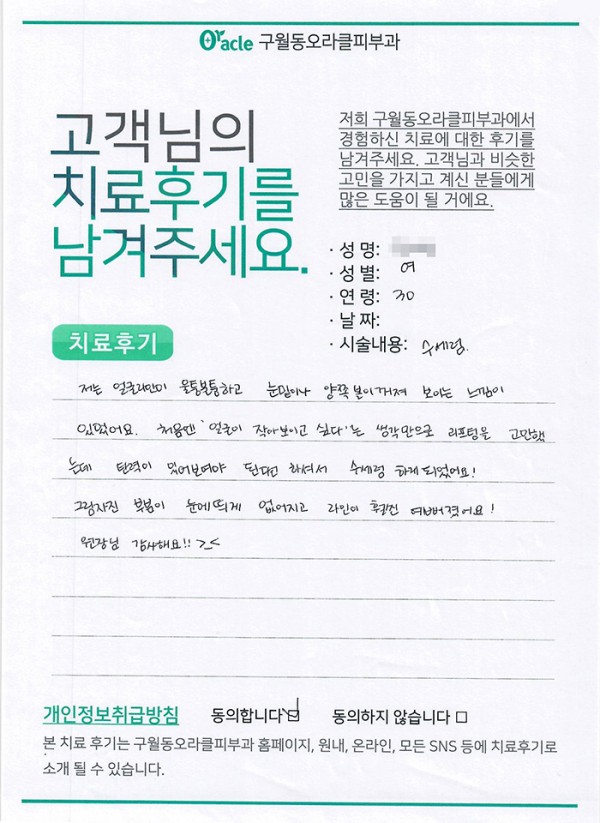 Oracle 구월동오라클피부과
고객님의
치료후기를
남겨주세요.
저희 구월동오라클피부과에서
경험하신 치료에 대한 후기를
남겨주세요. 고객님과 비슷한
고민을 가지고 계신 분들에게
많은 도움이 될 거에요.
· 성 명:
· 성 별: 여
· 연 령: 30
· 날 짜:
· 시술내용: 수세렴
치료후기
저는 얼굴라인이 울퉁불퉁하고 눈밑이나 양쪽 볼이 꺼져 보이는 느낌이
있었어요. 처음엔 '얼굴이 작아보이고 싶다'는 생각만으로 리프팅을 고민했
는데 탄력이 있어보여야 된다면 하셔서 수세렴 하게 되었어요!
그림자진 부분이 눈에 띄게 없어지고 라인이 훨씬 예뻐졌어요!
원장님 감사해요!! >_<
개인정보취급방침 동의합니다 동의하지 않습니다
본 치료 후기는 구월동오라클피부과 홈페이지, 원내, 온라인, 모든 SNS 등에 치료후기로
소개 될 수 있습니다.